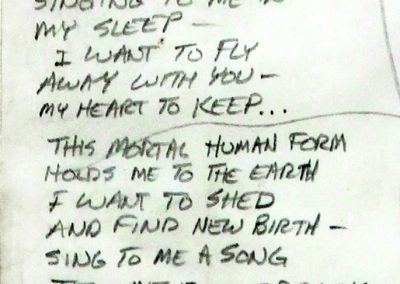 SINGING TO ME IN
MY SLEEP –
I WANT TO FLY
AWAY WITH YOU –
MY HEART TO KEEP...
THIS MORTAL HUMAN FORM
HOLDS ME TO THE EARTH
I WANT TO SHED
AND FIND NEW BIRTH –
SING TO ME A SONG